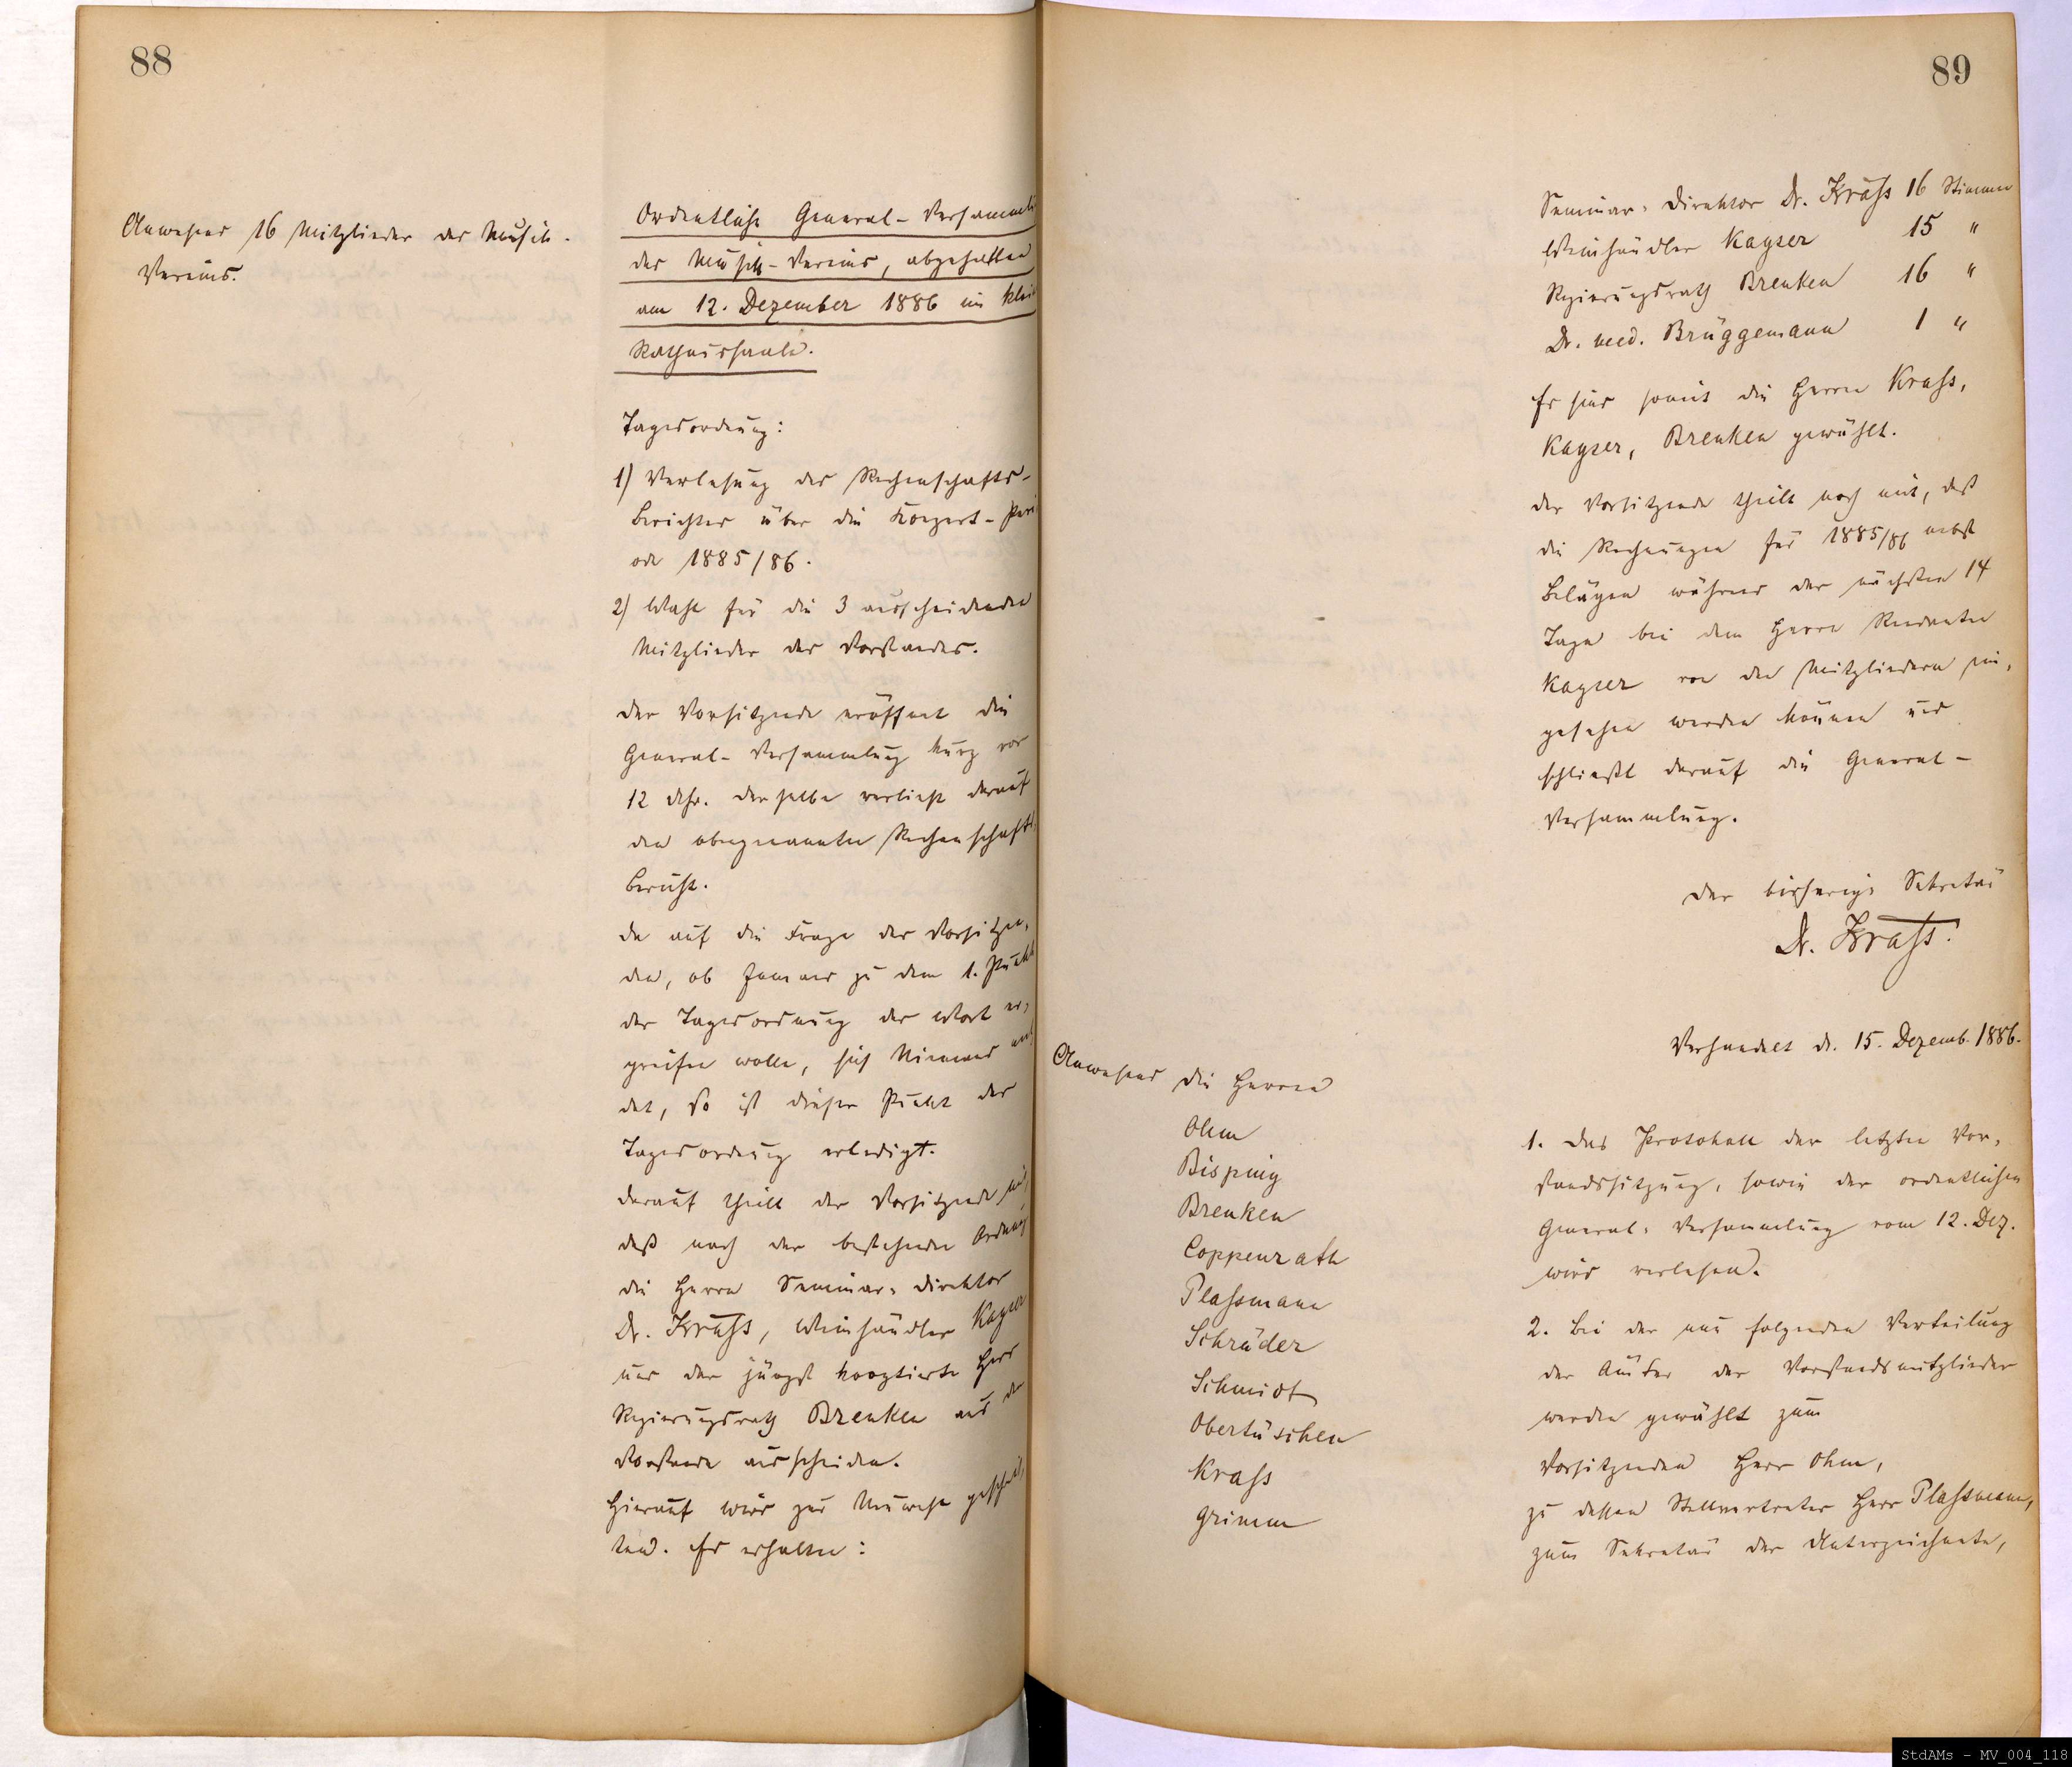 88
Anwesend 16 Mitglieder des Musik-
Vereins.
Ordentliche General-Versammlu
des Musik-Vereins, abgehalten
am 12. Dezember 1886 im klei
Rathaussaale.
Tagesordnung:
1) Verlesung des Rechenschafts-
Berichtes über die Konzert-Peri
ode 1885/86.
2) Wahl für die 3 ausscheidenden
Mitglieder des Vorstandes.
Der Vorsitzende eröffnet die
General-Versammlung kurz vor
12 Uhr. Derselbe verliest darauf
den obengenannten Rechenschafts
Bericht.
Da auf die Frage des Vorsitzen-
den, ob Jemand zu dem 1. Punkt
der Tagesordnung das Wort er-
greifen wolle, sich Niemand mel
det, so ist dieser Punkt der
Tagesordnung erledigt.
Darauf theilt der Vorsitzende mit,
daß nach der bestehenden Ordnung
die Herren Seminar-Direktor
Dr. Krass, Weinhändler Kayser
und der jüngst kooptierte Herr
Regierungsrath Brenken aus dem
Vorstande ausscheiden.
Hierauf wird zur Neuwahl geschrit-
ten. Es erhalten:
89
Seminar-Direktor Dr. Krass 16 Stimmen
Weinhändler Kayser 15 "
Regierungsrath Brenken 16 "
Dr. med. Brüggemann 1 "
Es sind somit die Herren Krass,
Kayser, Brenken gewählt.
Der Vorsitzende theilt noch mit, daß
die Rechnungen für 1885/86 nebst
Belägen während der nächsten 14
Tage bei dem Herrn Rendanten
Kayser von den Mitgliedern ein-
gesehen werden können und
schließt darauf die General-
Versammlung.
Der bisherige Sekretär
Dr. Krass.
Verhandelt d. 15. Dezemb. 1886.
Anwesend die Herren
Ohm
Bisping
Brenken
Coppenrath
Plassmann
Schräder
Schmidt
Obertüschen
Krass
Grimm
1. Das Protokoll der letzten Vor-
standssitzung, sowie der ordentlichen
General-Versammlung vom 12. Dez.
wird verlesen.
2. Bei der nun folgenden Verteilung
der Ämter der Vorstandsmitglieder
werden gewählt zum
Vorsitzenden Herr Ohm,
zu dessen Stellvertreter Herr Plassmann,
zum Sekretär der Unterzeichnete,
StdAMs - MV_004_118